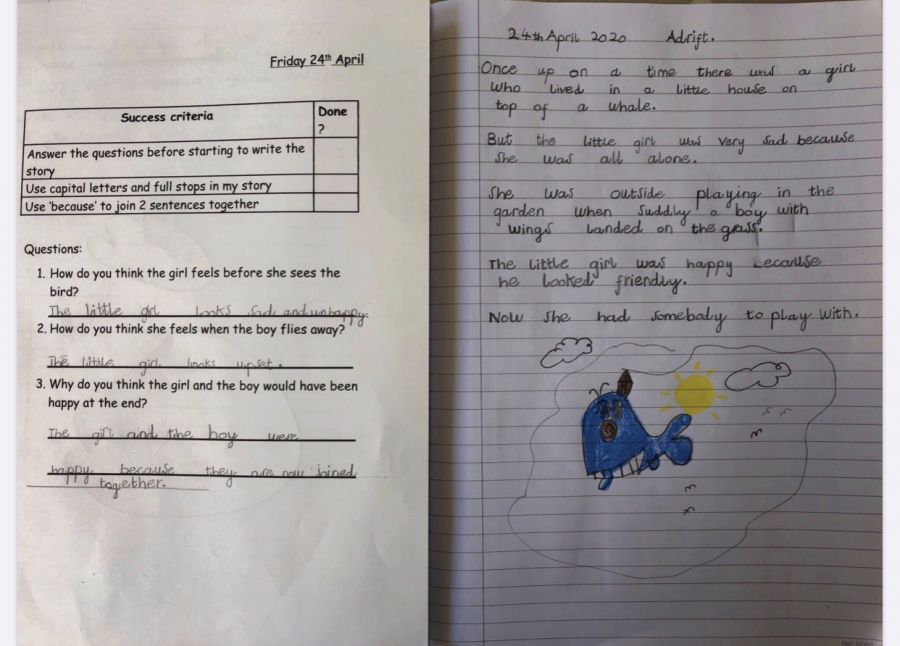 Friday 24th April
Success criteria
Done
?
Answer the questions before starting to write the
story
Use capital letters and full stops in my story
Use 'because' to join 2 sentences together
Questions:
1. How do you think the girl feels before she sees the
bird?
The little girl looks sad and unhappy.
2. How do you think she feels when the boy flies away?
The little girl looks upset.
3. Why do you think the girl and the boy would have been
happy at the end?
The girl and the boy were
happy because they are now joined
together.
24th April 2020 Adrift.
Once up on a time there was a girl
who lived in a little house on
top of a whale.
But the little girl was very sad because
she was all alone.
She was outside playing in the
garden when suddly a boy with
wings landed on the grass.
The little girl was happy because
he looked friendly.
Now she had somebody to play with.